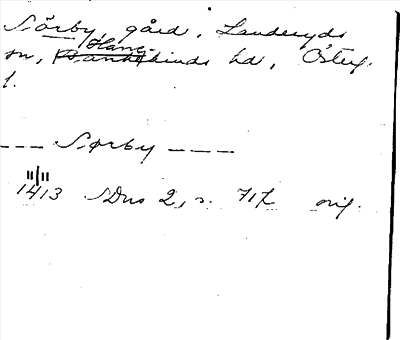 Sörby, gård, Landeryds
sn, Hane-kinds hd, Österg.
l.
--- Sørby ---
11/11
1413 SDns 2, s. 717 orig.